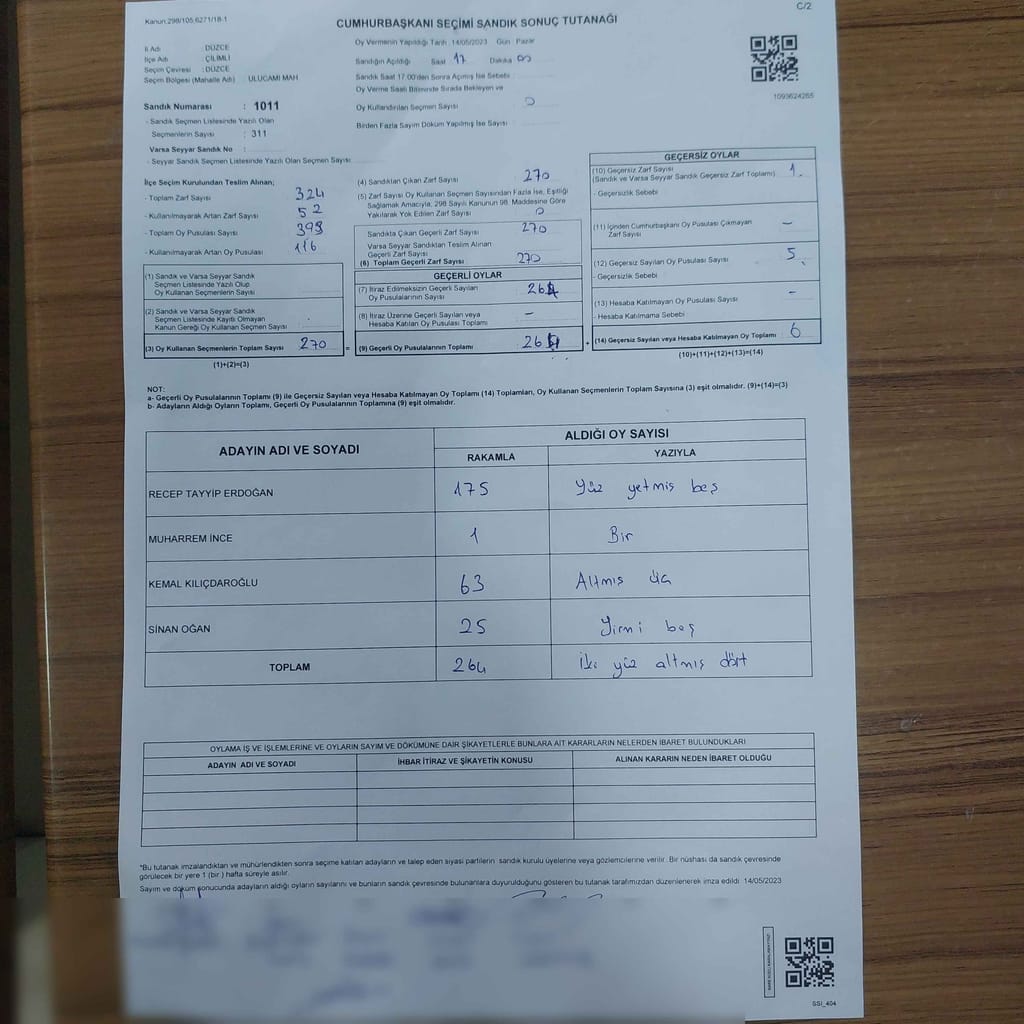 Kanun:298/105,6271/18-1
C/2
CUMHURBAŞKANI SEÇİMİ SANDIK SONUÇ TUTANAĞI
İl Adı : DÜZCE
İlçe Adı : ÇİLİMLİ
Seçim Çevresi : DÜZCE
Seçim Bölgesi (Mahalle Adı) : ULUCAMİ MAH
Oy Vermenin Yapıldığı Tarih 14/05/2023 Gün Pazar
Sandığın Açıldığı Saat 17 Dakika 00
Sandık Saat 17.00'den Sonra Açmış İse Sebebi
Oy Verme Saati Bitiminde Sırada Bekleyen ve
Oy Kullandırılan Seçmen Sayısı : 0
Birden Fazla Sayım Döküm Yapılmış İse Sayısı
1093624265
Sandık Numarası : 1011
- Sandık Seçmen Listesinde Yazılı Olan
Seçmenlerin Sayısı : 311
Varsa Seyyar Sandık No :
- Seyyar Sandık Seçmen Listesinde Yazılı Olan Seçmen Sayısı
İlçe Seçim Kurulundan Teslim Alınan;
- Toplam Zarf Sayısı 324
- Kullanılmayarak Artan Zarf Sayısı 52
- Toplam Oy Pusulası Sayısı 393
- Kullanılmayarak Artan Oy Pusulası 116
(1) Sandık ve Varsa Seyyar Sandık
Seçmen Listesinde Yazılı Olup
Oy Kullanan Seçmenlerin Sayısı
(2) Sandık ve Varsa Seyyar Sandık
Seçmen Listesinde Kayıtlı Olmayan
Kanun Gereği Oy Kullanan Seçmen Sayısı
(3) Oy Kullanan Seçmenlerin Toplam Sayısı 270
(1)+(2)=(3)
(4) Sandıktan Çıkan Zarf Sayısı 270
(5) Zarf Sayısı Oy Kullanan Seçmen Sayısından Fazla İse, Eşitliği
Sağlamak Amacıyla, 298 Sayılı Kanunun 98. Maddesine Göre
Yakılarak Yok Edilen Zarf Sayısı 0
Sandıkta Çıkan Geçerli Zarf Sayısı 270
Varsa Seyyar Sandıktan Teslim Alınan
Geçerli Zarf Sayısı
(6) Toplam Geçerli Zarf Sayısı 270
GEÇERLİ OYLAR
(7) İtiraz Edilmeksizin Geçerli Sayılan
Oy Pusulalarının Sayısı 264
(8) İtiraz Üzerine Geçerli Sayılan veya
Hesaba Katılan Oy Pusulası Toplamı –
= (9) Geçerli Oy Pusulalarının Toplamı 264 +
GEÇERSİZ OYLAR
(10) Geçersiz Zarf Sayısı 1.
(Sandık ve Varsa Seyyar Sandık Geçersiz Zarf Toplamı)
- Geçersizlik Sebebi
(11) İçinden Cumhurbaşkanı Oy Pusulası Çıkmayan –
Zarf Sayısı
(12) Geçersiz Sayılan Oy Pusulası Sayısı 5
- Geçersizlik Sebebi
(13) Hesaba Katılmayan Oy Pusulası Sayısı –
- Hesaba Katılmama Sebebi
(14) Geçersiz Sayılan veya Hesaba Katılmayan Oy Toplamı 6
(10)+(11)+(12)+(13)=(14)
NOT:
a- Geçerli Oy Pusulalarının Toplamı (9) ile Geçersiz Sayılan veya Hesaba Katılmayan Oy Toplamı (14) Toplamları, Oy Kullanan Seçmenlerin Toplam Sayısına (3) eşit olmalıdır. (9)+(14)=(3)
b- Adayların Aldığı Oyların Toplamı, Geçerli Oy Pusulalarının Toplamına (9) eşit olmalıdır.
ADAYIN ADI VE SOYADI
ALDIĞI OY SAYISI
RAKAMLA YAZIYLA
RECEP TAYYİP ERDOĞAN 175 Yüz yetmiş beş
MUHARREM İNCE 1 Bir
KEMAL KILIÇDAROĞLU 63 Altmış üç
SİNAN OĞAN 25 Yirmi beş
TOPLAM 264 İki yüz altmış dört
OYLAMA İŞ VE İŞLEMLERİNE VE OYLARIN SAYIM VE DÖKÜMÜNE DAİR ŞİKAYETLERLE BUNLARA AİT KARARLARIN NELERDEN İBARET BULUNDUKLARI
ADAYIN ADI VE SOYADI İHBAR İTİRAZ VE ŞİKAYETİN KONUSU ALINAN KARARIN NEDEN İBARET OLDUĞU
*Bu tutanak imzalandıktan ve mühürlendikten sonra seçime katılan adayların ve talep eden siyasi partilerin sandık kurulu üyelerine veya gözlemcilerine verilir. Bir nüshası da sandık çevresinde
görülecek bir yere 1 (bir) hafta süreyle asılır.
Sayım ve döküm sonucunda adayların aldığı oyların sayılarını ve bunların sandık çevresinde bulunanlara duyurulduğunu gösteren bu tutanak tarafımızdan düzenlenerek imza edildi. 14/05/2023
SSI_404